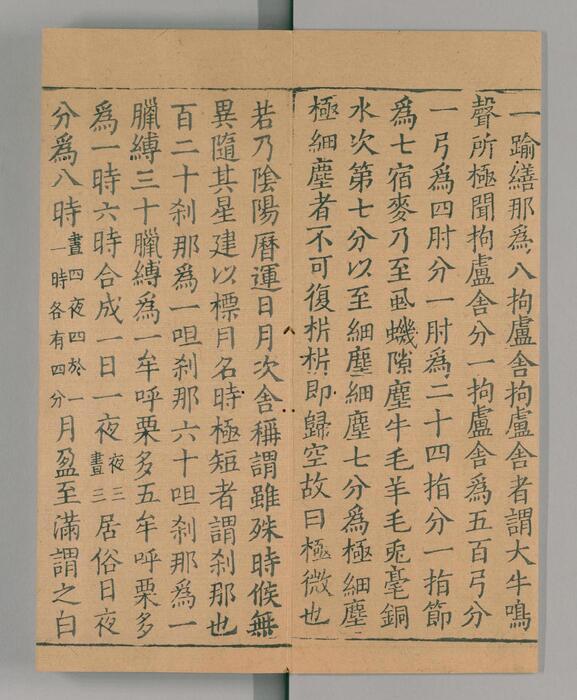 一踰繕那爲八拘盧舍拘盧舍者謂大牛鳴
聲所極聞拘盧舍分一拘盧舍爲五百弓分
一弓爲四肘分一肘爲二十四指分一指節
爲七宿麥乃至虱蟣隙塵牛毛羊毛兎毫銅
水次第七分以至細塵細塵七分爲極細塵
極細塵者不可復析析即歸空故曰極微也
若乃陰陽曆運日月次舍稱謂雖殊時候無
異隨其星建以標月名時極短者謂刹那也
百二十刹那爲一呾刹那六十呾刹那爲一
臘縛三十臘縛爲一牟呼栗多五牟呼栗多
爲一時六時合成一日一夜夜三晝三居俗日夜
分爲八時晝四夜四於一時各有四分月盈至滿謂之白